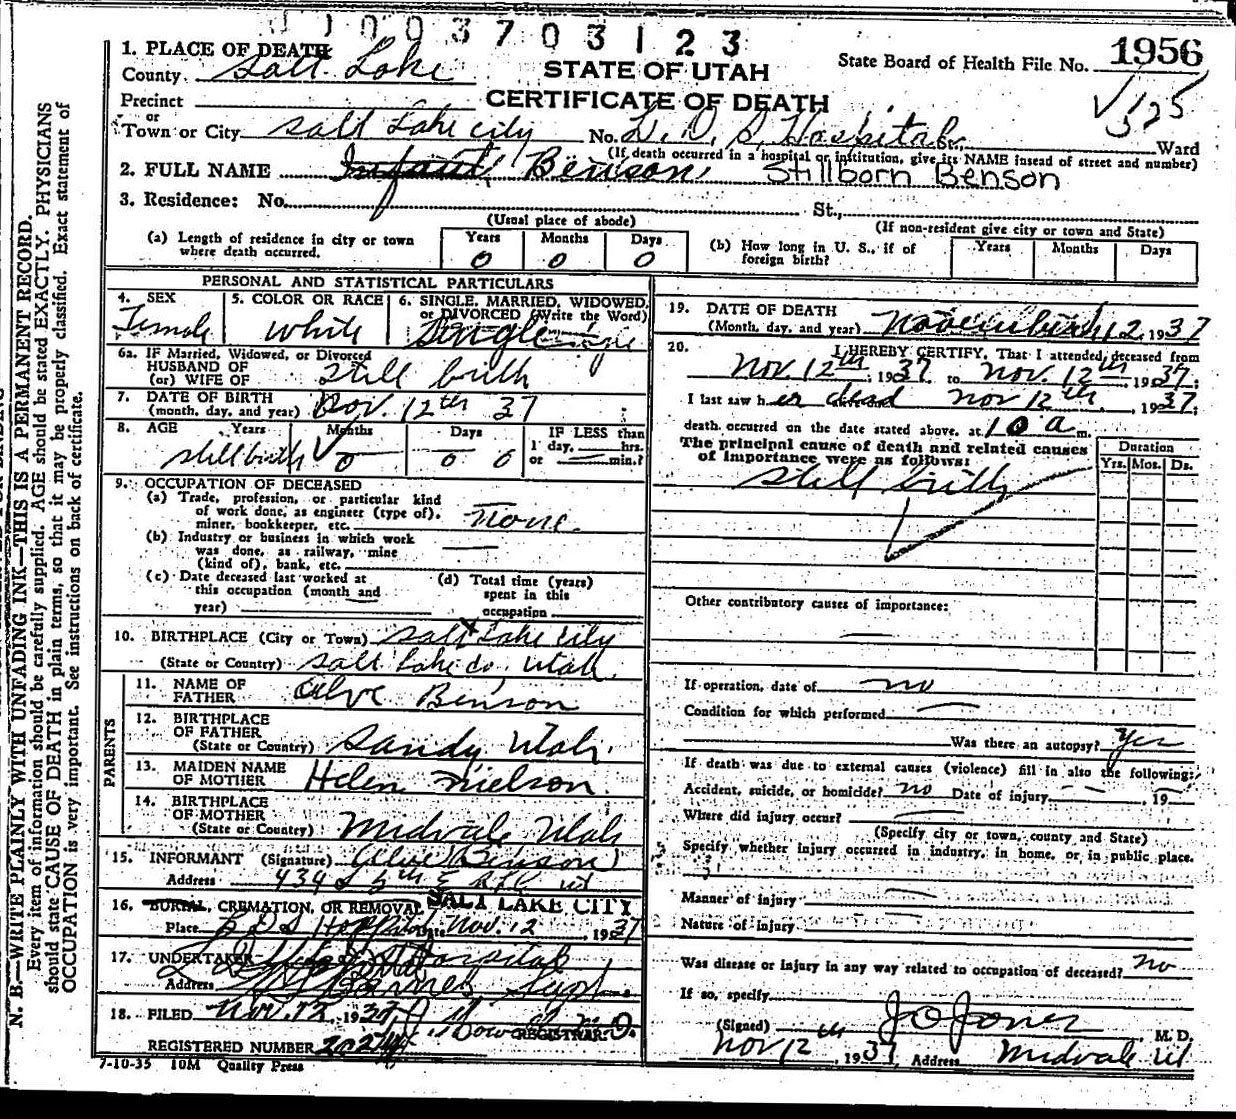 1003703123
1. PLACE OF DEATH
County Salt Lake
STATE OF UTAH
State Board of Health File No. 1956
Precinct
CERTIFICATE OF DEATH
or
Town or City Salt Lake City No. L. D. S. Hospital Ward
(If death occurred in a hospital or institution, give its NAME insead of street and number)
2. FULL NAME Infant Benson Stillborn Benson
3. Residence: No. St.,
(Usual place of abode) (If non-resident give city or town and State)
(a) Length of residence in city or town where death occurred. Years 0 Months 0 Days 0
(b) How long in U. S., if of foreign birth? Years Months Days
PERSONAL AND STATISTICAL PARTICULARS
4. SEX Female
5. COLOR OR RACE White
6. SINGLE, MARRIED, WIDOWED, or DIVORCED (Write the Word) Single
6a. IF Married, Widowed, or Divorced
HUSBAND OF
(or) WIFE OF Still birth
7. DATE OF BIRTH
(month, day, and year) Nov. 12th 37
8. AGE Years Months Days IF LESS than
1 day, hrs.
or min.?
Stillbirth 0 0 0
9. OCCUPATION OF DECEASED
(a) Trade, profession, or particular kind
of work done, as engineer (type of),
miner, bookkeeper, etc. None.
(b) Industry or business in which work
was done, as railway, mine
(kind of), bank, etc.
(c) Date deceased last worked at
this occupation (month and
year)
(d) Total time (years)
spent in this
occupation
10. BIRTHPLACE (City or Town) Salt Lake City
(State or Country) Salt Lake Co, Utah.
PARENTS
11. NAME OF
FATHER Alve Benson
12. BIRTHPLACE
OF FATHER
(State or Country) Sandy Utah.
13. MAIDEN NAME
OF MOTHER Helen Nielson.
14. BIRTHPLACE
OF MOTHER
(State or Country) Midvale Utah
15. INFORMANT (Signature) Alve Benson
Address
16. BURIAL, CREMATION, OR REMOVAL SALT LAKE CITY
Place L D S Hospital Date Nov. 12, 1937
17. UNDERTAKER Hospital
Address Barnes Supt.
18. FILED Nov. 12, 1937
REGISTRAR.
REGISTERED NUMBER
7-10-35 10M Quality Press
19. DATE OF DEATH
(Month, day, and year) November 12, 1937
20. I HEREBY CERTIFY, That I attended deceased from
Nov 12th, 1937 to Nov. 12th, 1937;
I last saw her dead Nov 12th, 1937;
death occurred on the date stated above, at 10 a m.
The principal cause of death and related causes
of importance were as follows:
Duration
Yrs. Mos. Ds.
Still birth
Other contributory causes of importance:
If operation, date of no
Condition for which performed
Was there an autopsy? Yes
If death was due to external causes (violence) fill in also the following:
Accident, suicide, or homicide? no Date of injury , 19
Where did injury occur?
(Specify city or town, county and State)
Specify whether injury occurred in industry, in home, or in public place.
Manner of injury
Nature of Injury
Was disease or injury in any way related to occupation of deceased? no
If so, specify
(Signed) J O Jones M. D.
Nov 12th, 1937 Address Midvale Ut
N. B.—WRITE PLAINLY WITH UNFADING INK—THIS IS A PERMANENT RECORD.
Every item of information should be carefully supplied. AGE should be stated EXACTLY. PHYSICIANS
should state CAUSE OF DEATH in plain terms, so that it may be properly classified. Exact statement of
OCCUPATION is very important. See instructions on back of certificate.